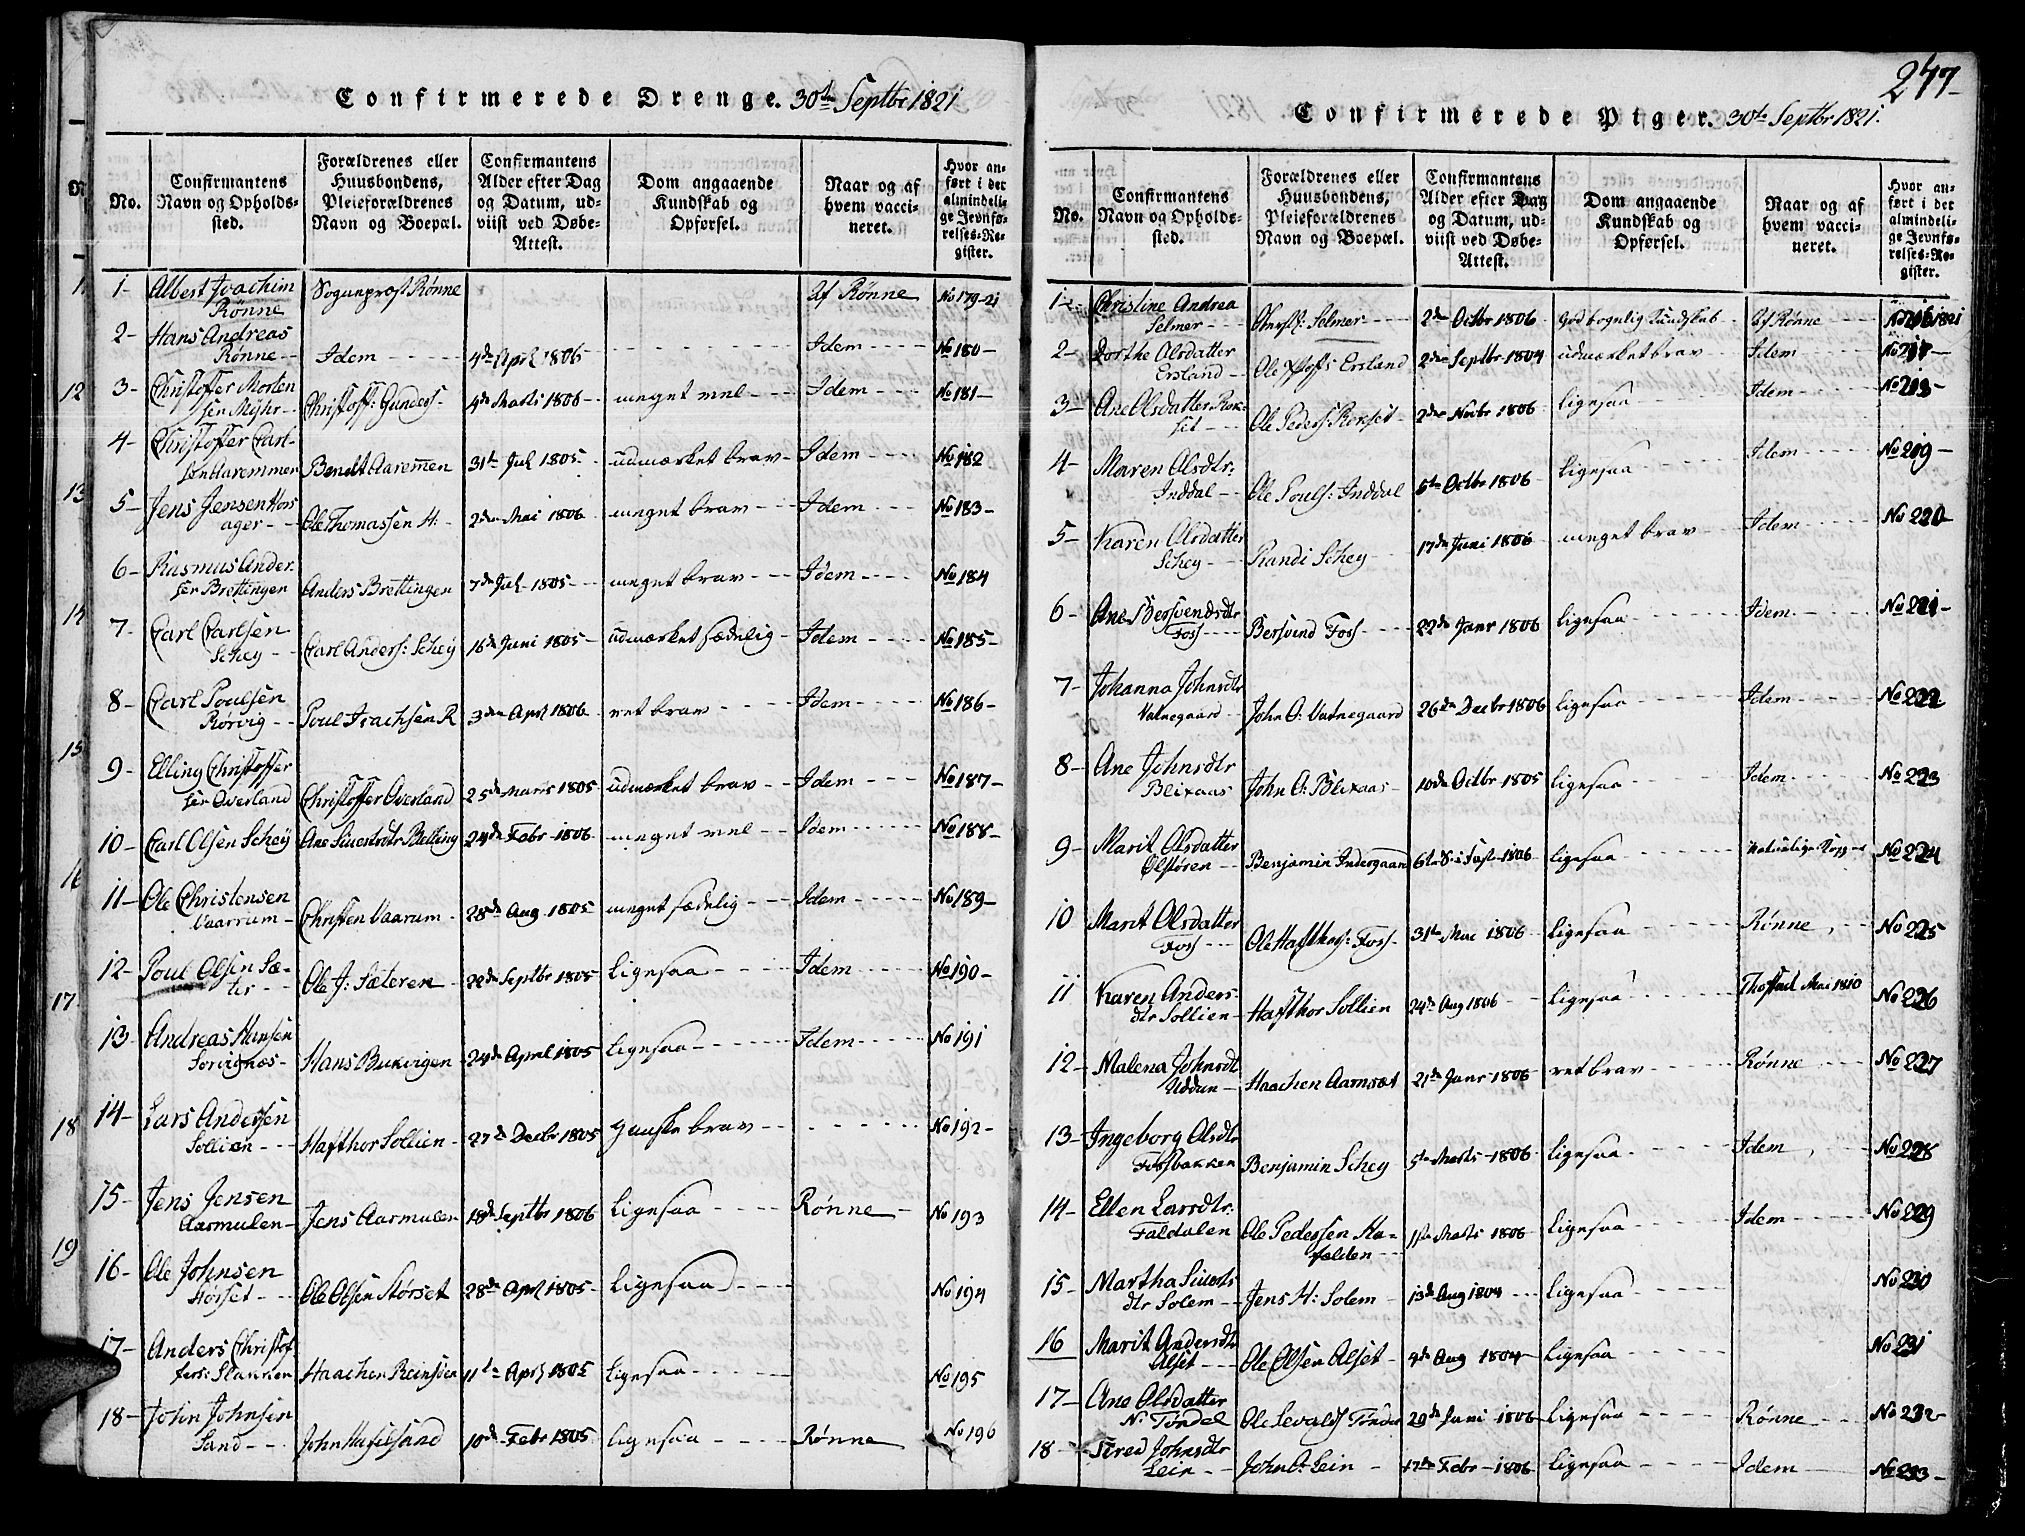 Confirmerede Drenge. 30te Septbr 1821
No.
Confirmantens Navn og Opholdssted.
Forældrenes eller Huusbondens, Pleieforældrenes Navn og Boepæl.
Confirmantens Alder efter Dag og Datum, udviist ved Døbe-Attest.
Dom angaaende Kundskab og Opførsel.
Naar og af hvem vaccineret.
Hvor anført i det almindelige Jevnførelses-Register.
1- Albert Joachim Rønne Sognepræst Rønne Af Rønne No 179-21
2- Hans Andreas Rønne Idem 4de Apl 1806 Idem No 180
3- Christoffer Morten sen Myhr Christoff: Gunders 4de Marti 1806 meget vel Idem No 181
4- Christoffer Carlsen Aaremmen Bendt Aaremen 31te Jul 1805 udmærket brav Idem No 182
5- Jens Jensen Hos ager Ole Thomassen H: 2den Mai 1806 meget brav Idem No 183
6- Rasmus Ander sen Brettingen Anders Brettingen 7de Jul 1805 meget brav Idem No 184
7- Carl Carlsen Schey Carl Anders: Schey 16de Juni 1805 udmærket sædelig Idem No 185
8- Carl Poulsen Rørvig Poul Isachsen R 3den Apl 1806 ret brav Idem No 186
9- Elling Christoffer sen Overland Christoffer Overland 25de Marts 1805 udmærket brav Idem No 187
10- Carl Olsen Schey Ane Siversdtr Belling 24de Febr 1806 meget vel Idem No 188
11- Ole Christensen Vaarum Christen Vaarum 28de Aug 1805 meget sædelig Idem No 189
12- Poul Olsen Sæter Ole J: Sæteren 22de Septbr 1805 ligesaa Idem No 190
13- Andreas Hansen Sørvignæs Hans Bukvigen 24de April 1805 ligesaa Idem No 191
14- Lars Andersen Sollien Hafthor Sollien 27de Decbr 1805 ganske brav No 192
15- Jens Jensen Aarmulen Jens Aarmulen 18de Septbr 1806 ligesaa Rønne No 193
16- Ole Johnsen Størset Ole Olsen Størset 28de Apl 1805 ligesaa No 194
17- Anders Christof fers: Slauvien Haachen Reinsven 11te Apl 1805 ligesaa No 195
18- John Johnsen Sand John Hafelsand 10de Febr 1805 ligesaa Rønne No 196
247
Confirmerede Piger. 30te Septbr 1821.
No.
Confirmantens Navn og Opholdssted.
Forældrenes eller Huusbondens, Pleieforældrenes Navn og Boepæl.
Confirmantens Alder efter Dag og Datum, udviist ved Døbe-Attest.
Dom angaaende Kundskab og Opførsel.
Naar og af hvem vaccineret.
Hvor anført i det almindelige Jevnførelses-Register.
1- Christine Andrea Selmer Oberstl: Selmer 2den Octbr 1806 god bogelig Kundskab Af Rønne 1821
2- Dorthe Olsdatter Ersland Ole Ersland 2den Septbr 1804 udmærket brav Idem
3- Ane Olsdatter Rokset Ole Peders Rokset 2den Novbr 1806 ligesaa Idem
4- Maren Olsdtr: Inddal Ole Pouls: Inddal 5te Octbr 1806 ligesaa Idem No 219
5- Karen Olsdatter Schey Randi Schey 17de Juni 1806 meget brav Idem No 220
6- Ane Bersvendsdtr Foss Bersvend Foss 22de Janr 1806 ligesaa Idem No 221
7- Johanna Johnsdtr Vatnegaard John O: Vatnegaard 26de Decbr 1806 ligesaa Idem No 222
8- Ane Johnsdtr Blixaas John O: Blixaas 10de Octbr 1805 ligesaa Idem No 223
9- Marit Olsdatter Ølstøren Benjamin Indergaard 6te S: i Fast 1806 ligesaa Naturlige Kopper No 224
10 Marit Olsdatter Foss Ole Hafthors: Foss 31te Mai 1806 ligesaa Rønne No 225
11 Karen Anders dtr Sollien Hafthor Sollien 24de Aug 1806 ligesaa Mai 1810 No 226
12- Malena Johnsdt Uddun Haachen Aamsæt 21de Janr 1806 ret brav Rønne No 227
13- Ingeborg Olsdtr Fossbakken Benjamin Schey 5te Marti 1806 ligesaa Idem No 228
14- Ellen Larsdtr: Faldalen Ole Pedersen Hafælden 11te Marti 1806 ligesaa Idem No 229
15- Martha Siverts dtr Solem Jens H: Solem 13de Aug 1804 ligesaa No 230
16 Marit Andersdtr Alset Ole Olsen Alset 4de Aug 1804 ligesaa No 231
17- Ane Olsdatter N: Tøndel Ole Sevalds Tøndel 20de Juni 1806 ligesaa Rønne No 232
18- Sired Johnsdtr Lein John O: Lein 17de Febr 1806 ligesaa Idem No 233